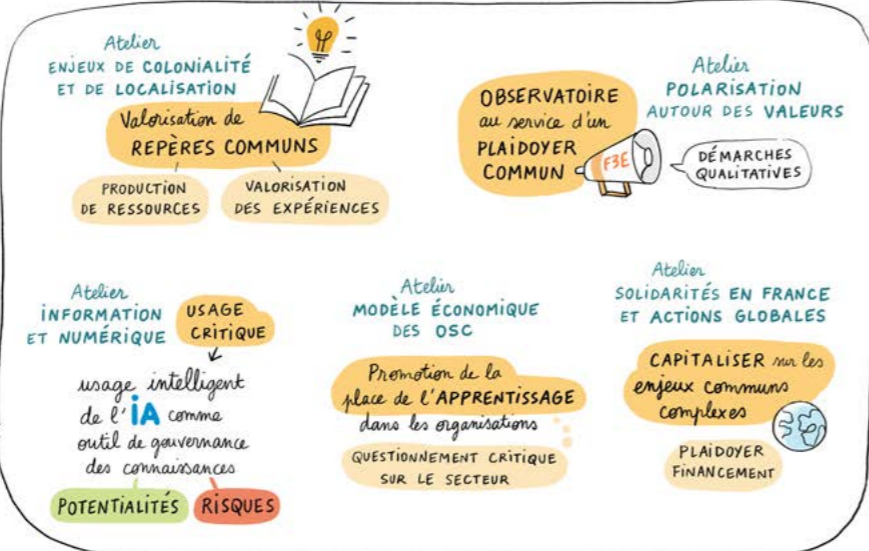 Atelier
ENJEUX DE COLONIALITÉ
ET DE LOCALISATION
Valorisation de
REPÈRES COMMUNS
PRODUCTION
DE RESSOURCES
VALORISATION
DES EXPÉRIENCES
OBSERVATOIRE
au service d'un
PLAIDOYER
COMMUN
F3E
Atelier
POLARISATION
AUTOUR DES VALEURS
DÉMARCHES
QUALITATIVES
Atelier
INFORMATION
ET NUMÉRIQUE
USAGE
CRITIQUE
usage intelligent
de l'IA comme
outil de gouvernance
des connaissances
POTENTIALITÉS
RISQUES
Atelier
MODÈLE ÉCONOMIQUE
DES OSC
Promotion de la
place de l'APPRENTISSAGE
dans les organisations
QUESTIONNEMENT CRITIQUE
SUR LE SECTEUR
Atelier
SOLIDARITÉS EN FRANCE
ET ACTIONS GLOBALES
CAPITALISER sur les
enjeux communs
complexes
PLAIDOYER
FINANCEMENT